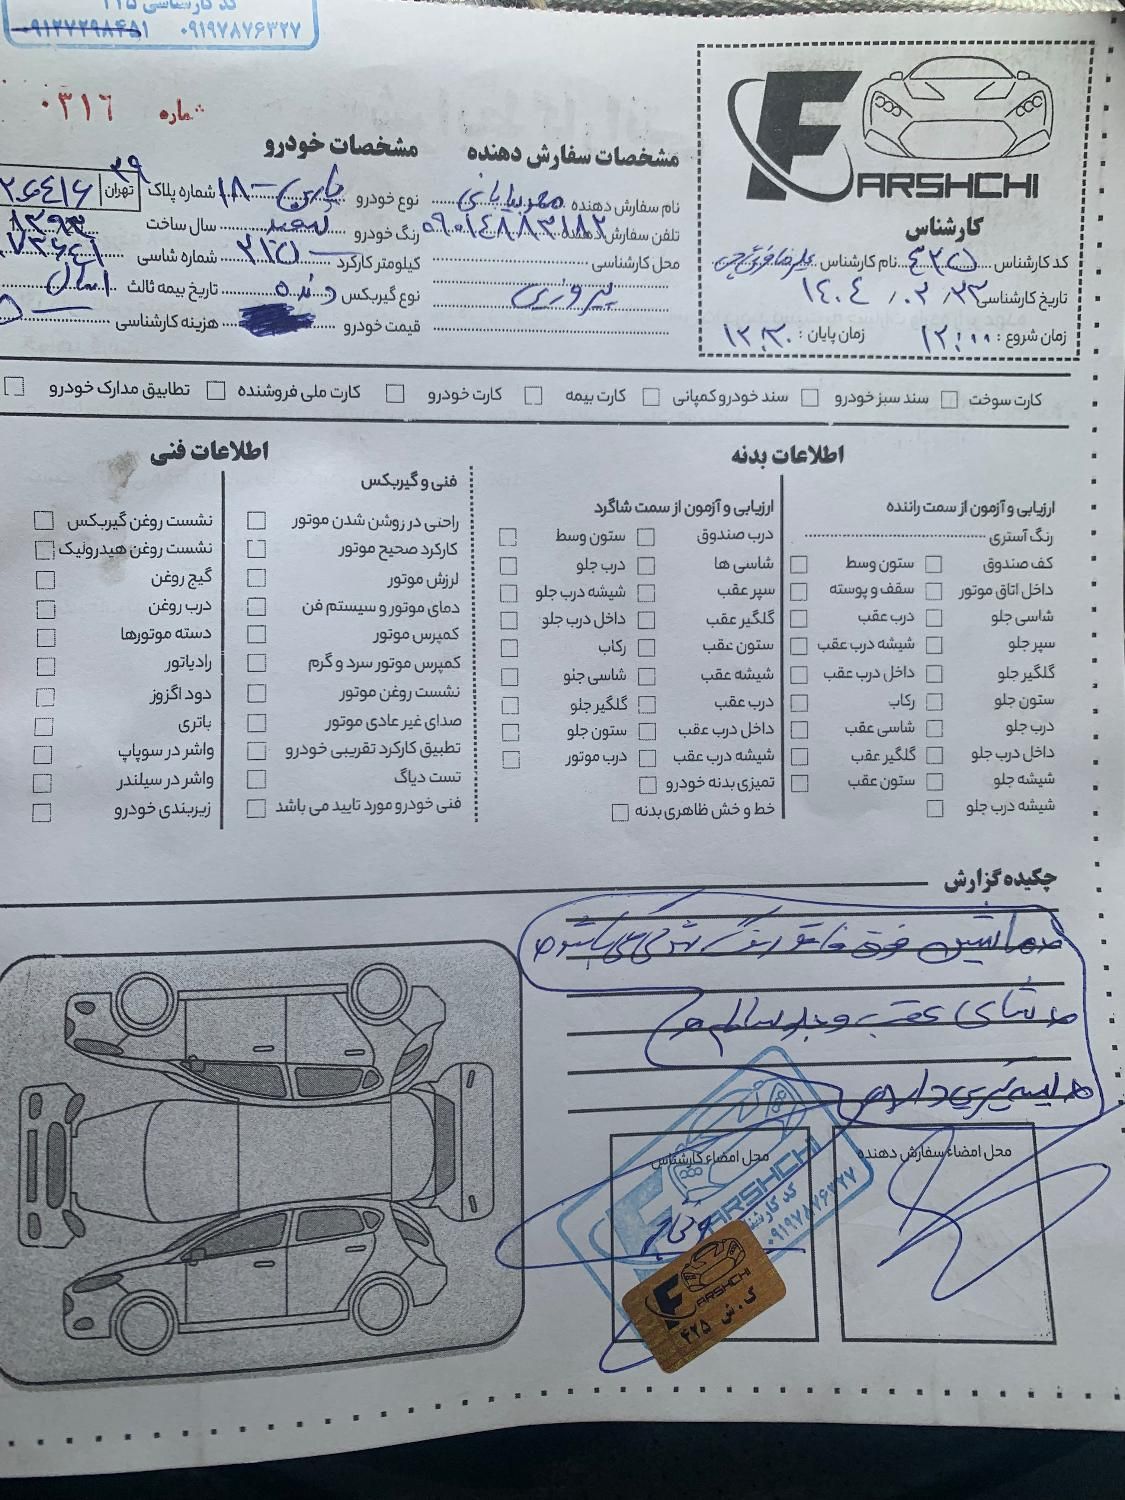 کد کارشناسی ۴۲۵
۰۹۱۹۷۸۷۶۳۲۷
۰۹۱۲۷۲۹۸۴۵۱
شماره ۰۳۱۶
FARSHCHI
کارشناس
کد کارشناس ۴۲۵ نام کارشناس علیرضا فرشچی
تاریخ کارشناسی ۱۴۰۴/۰۲/۲۳
زمان شروع : ۱۲:۰۰ زمان پایان : ۱۲:۳۰
مشخصات سفارش دهنده
نام سفارش دهنده
تلفن سفارش دهنده ۰۹۰۱۴۸۸۳۱۸۲
محل کارشناسی
پیروزی
مشخصات خودرو
نوع خودرو پارس شماره پلاک تهران
رنگ خودرو سفید سال ساخت ۱۳۹۳
کیلومتر کارکرد شماره شاسی
نوع گیربکس دنده تاریخ بیمه ثالث امسال
قیمت خودرو هزینه کارشناسی
کارت سوخت سند سبز خودرو سند خودرو کمپانی کارت بیمه کارت خودرو کارت ملی فروشنده تطابیق مدارک خودرو
اطلاعات بدنه
ارزیابی و آزمون از سمت راننده
رنگ آستری
کف صندوق ستون وسط
داخل اتاق موتور سقف و پوسته
شاسی جلو درب عقب
سپر جلو شیشه درب عقب
گلگیر جلو داخل درب عقب
ستون جلو رکاب
درب جلو شاسی عقب
داخل درب جلو گلگیر عقب
شیشه جلو ستون عقب
شیشه درب جلو
ارزیابی و آزمون از سمت شاگرد
درب صندوق ستون وسط
شاسی ها درب جلو
سپر عقب شیشه درب جلو
گلگیر عقب داخل درب جلو
ستون عقب رکاب
شیشه عقب شاسی جلو
درب عقب گلگیر جلو
داخل درب عقب ستون جلو
شیشه درب عقب درب موتور
تمیزی بدنه خودرو
خط و خش ظاهری بدنه
اطلاعات فنی
فنی و گیربکس
راحتی در روشن شدن موتور نشست روغن گیربکس
کارکرد صحیح موتور نشست روغن هیدرولیک
لرزش موتور گیج روغن
دمای موتور و سیستم فن درب روغن
کمپرس موتور دسته موتورها
کمپرس موتور سرد و گرم رادیاتور
نشست روغن موتور دود اگزوز
صدای غیر عادی موتور باتری
تطبیق کارکرد تقریبی خودرو واشر در سوپاپ
تست دیاگ واشر در سیلندر
فنی خودرو مورد تایید می باشد زیربندی خودرو
چکیده گزارش
ماشین فوق فاقد رنگ شدگی می باشد
شاسی عقب و جلو سالم
لیسه گیری دارد
محل امضاء سفارش دهنده محل امضاء کارشناس
FARSHCHI
کد کارشناس
۰۹۱۹۷۸۷۶۳۲۷
FARSHCHI
ک.ش ۴۲۵